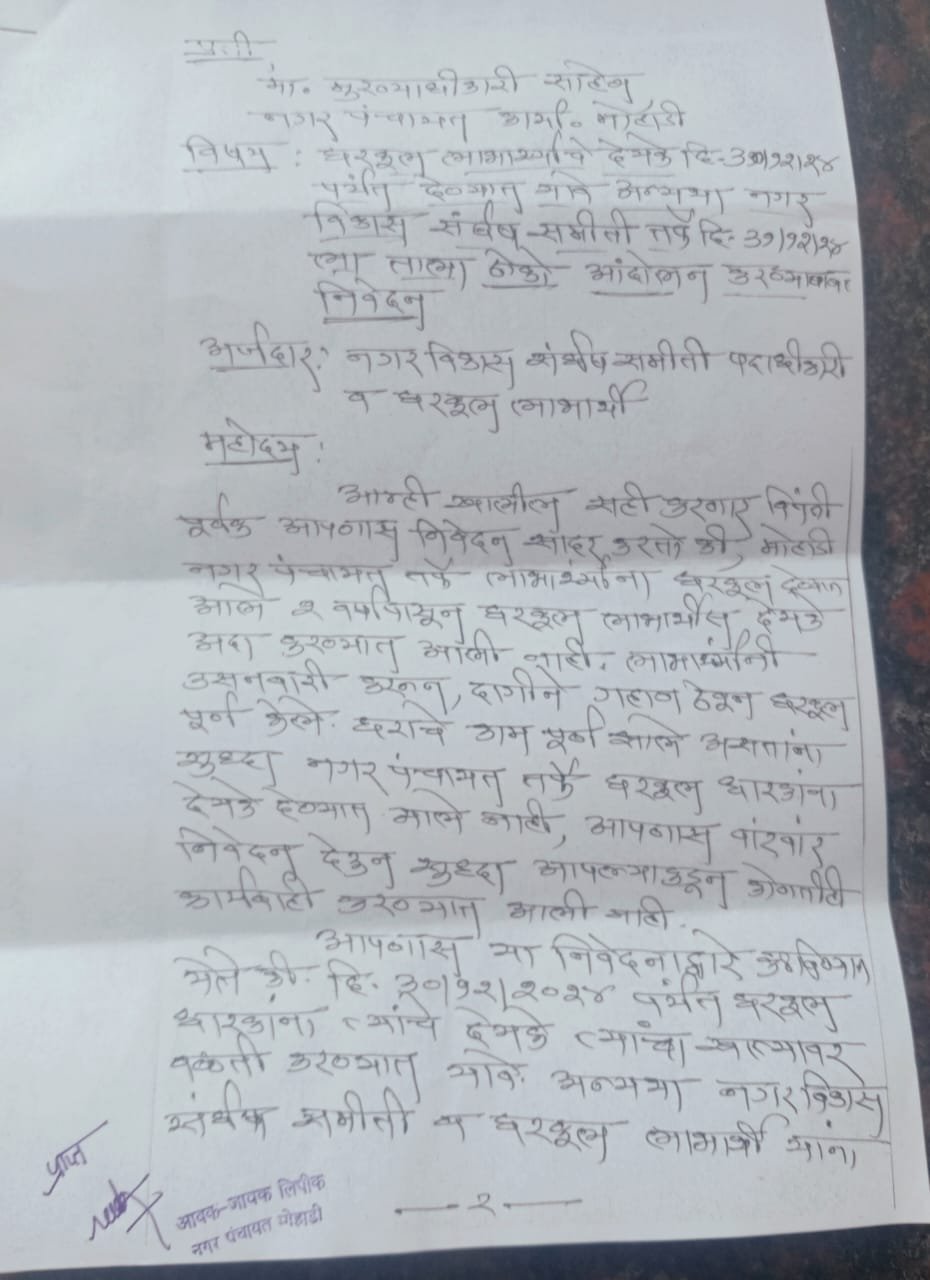 प्रती
मा. मुख्याधीकारी साहेब
नगर पंचायत कार्या. मोहाडी
विषय : घरकुल लाभार्थ्यांचे देयके दि. ३०/१२/२४
पर्यंत देण्यात यावे अन्यथा नगर
विकास संर्घष समीती तर्फे दि. ३१/१२/२४
ला ताला ठोको आंदोलन करण्याबाबत
निवेदन
अर्जदार : नगर विकास संर्घष समीती पदाधीकारी
व घरकुल लाभार्थी
महोदय :
आम्ही खालील सही करणार विनंती
पूर्वक आपणास निवेदन सादर करतो की, मोहाडी
नगर पंचायत तर्फे लाभार्थ्यांना घरकुल देण्यात
आले २ वर्षापासून घरकुल लाभार्थीस देयके
अदा करण्यात आली नाही. लाभार्थ्यांनी
उसनवारी करून, दागीने गहाण ठेवून घरकुल
पूर्ण केले. घराचे काम पूर्ण झाले असतांना
सुध्दा नगर पंचायत तर्फे घरकुल धारकांना
देयके देण्यात आले नाही, आपणास वांरवांर
निवेदन देऊन सुध्दा आपल्याकडून कोणतीही
कार्यवाही करण्यात आली नाही.
आपणास या निवेदनाद्वारे कळविण्यात
येते की. दि. ३०/१२/२०२४ पर्यंत घरकुल
धारकांना त्यांचे देयके त्यांचा खात्यावर
वळती करण्यात यावे. अन्यथा नगर विकास
संर्घष समीती व घरकुल लाभार्थी यांना
प्राप्त
आवक-जावक लिपीक
नगर पंचायत मोहाडी
— २ —